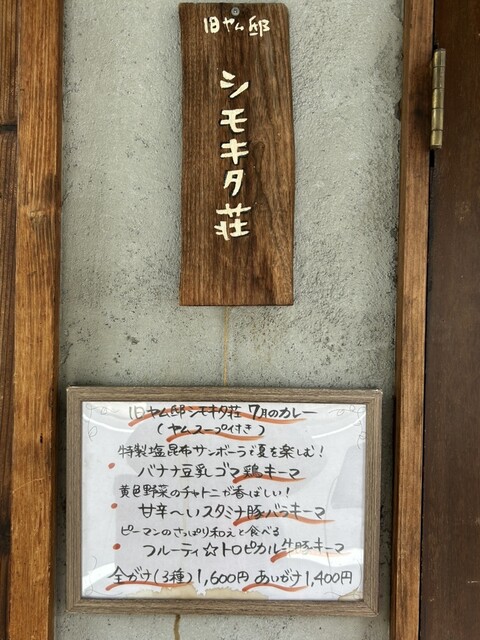 旧ヤム邸
シモキタ荘
旧ヤム邸シモキタ荘 7月のカレー
(ヤムスープ付き)
特製塩昆布サンボーラで夏を楽しむ!
バナナ豆乳ゴマ鶏キーマ
黄色野菜のチャトニが香ばしい!
甘辛〜いスタミナ豚バラキーマ
ピーマンのさっぱり和えと食べる
フルーティ☆トロピカル牛豚キーマ
全がけ(3種)1,600円 あいがけ1,400円